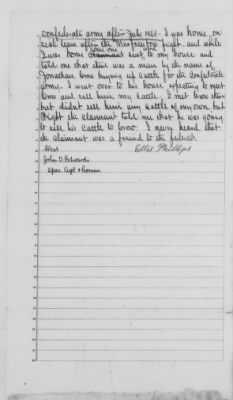 confederate army after July 1862. I was home, on
sick leave after the Murfreesboro fight and while
I was home some one sent word to my house and
told me that there was a man by the name of
Jonathan Orne buying up cattle for the Confederate
army. I went over to his house expecting to meet
Orne and sell him my cattle. I met Orne there
but didn't sell him any cattle of my own but
I heard the claimant told me that he was going
to sell his cattle to Orne. I never heard that
the claimant was a friend to the federals.
Attest Ellis Phillips
John D. Edwards
Special Agt &